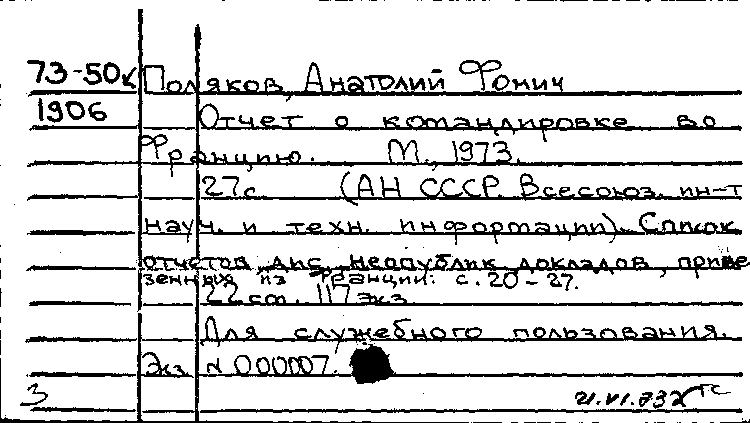 73-50к Поляков, Анатолий Фомич
1906 Отчет о командировке во
Францию. М., 1973.
27 с. (АН СССР. Всесоюз. ин-т
науч. и техн. информации). Список
отчетов, дис., неопублик докладов, приве
зенных из Франции: с. 20-27.
22 см. 117 экз.
Для служебного пользования.
Экз. № 000007.
3 21.VI.83